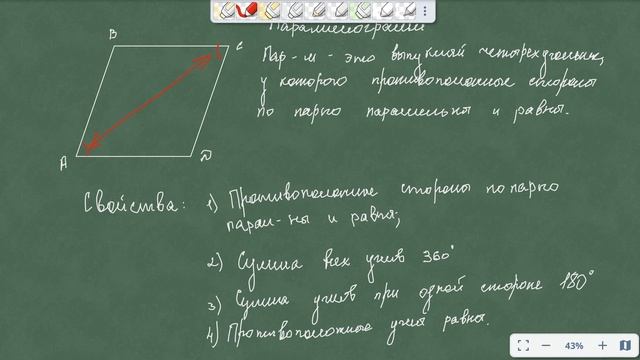 Параллелограмм
B
C
Пар-м - это выпуклый четырехугольник,
у которого противоположные стороны
по парно параллельны и равны.
A
D
Свойства: 1) Противоположные стороны по парно
парал-ны и равны;
2) Сумма всех углов 360°
3) Сумма углов при одной стороне 180°
4) Противоположные углы равны.
43%